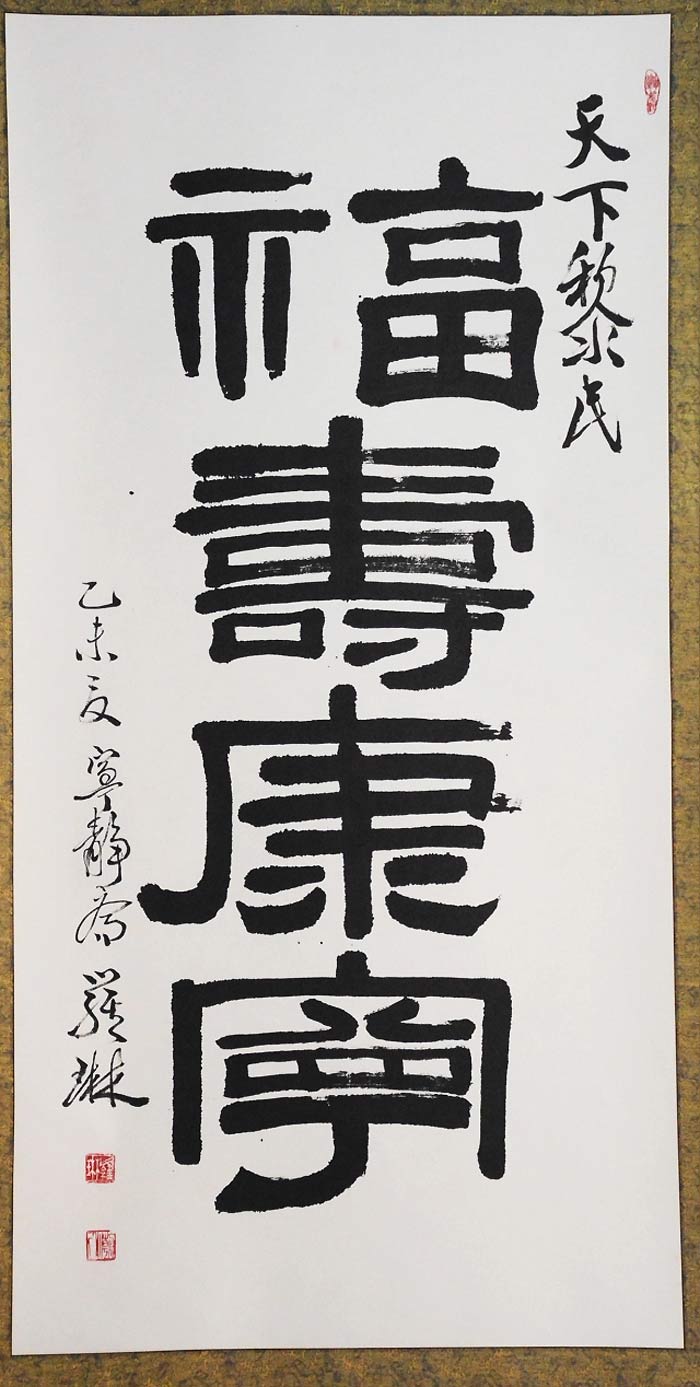 天下黎民
福壽康寧
乙未夏寧靜斋羅琳